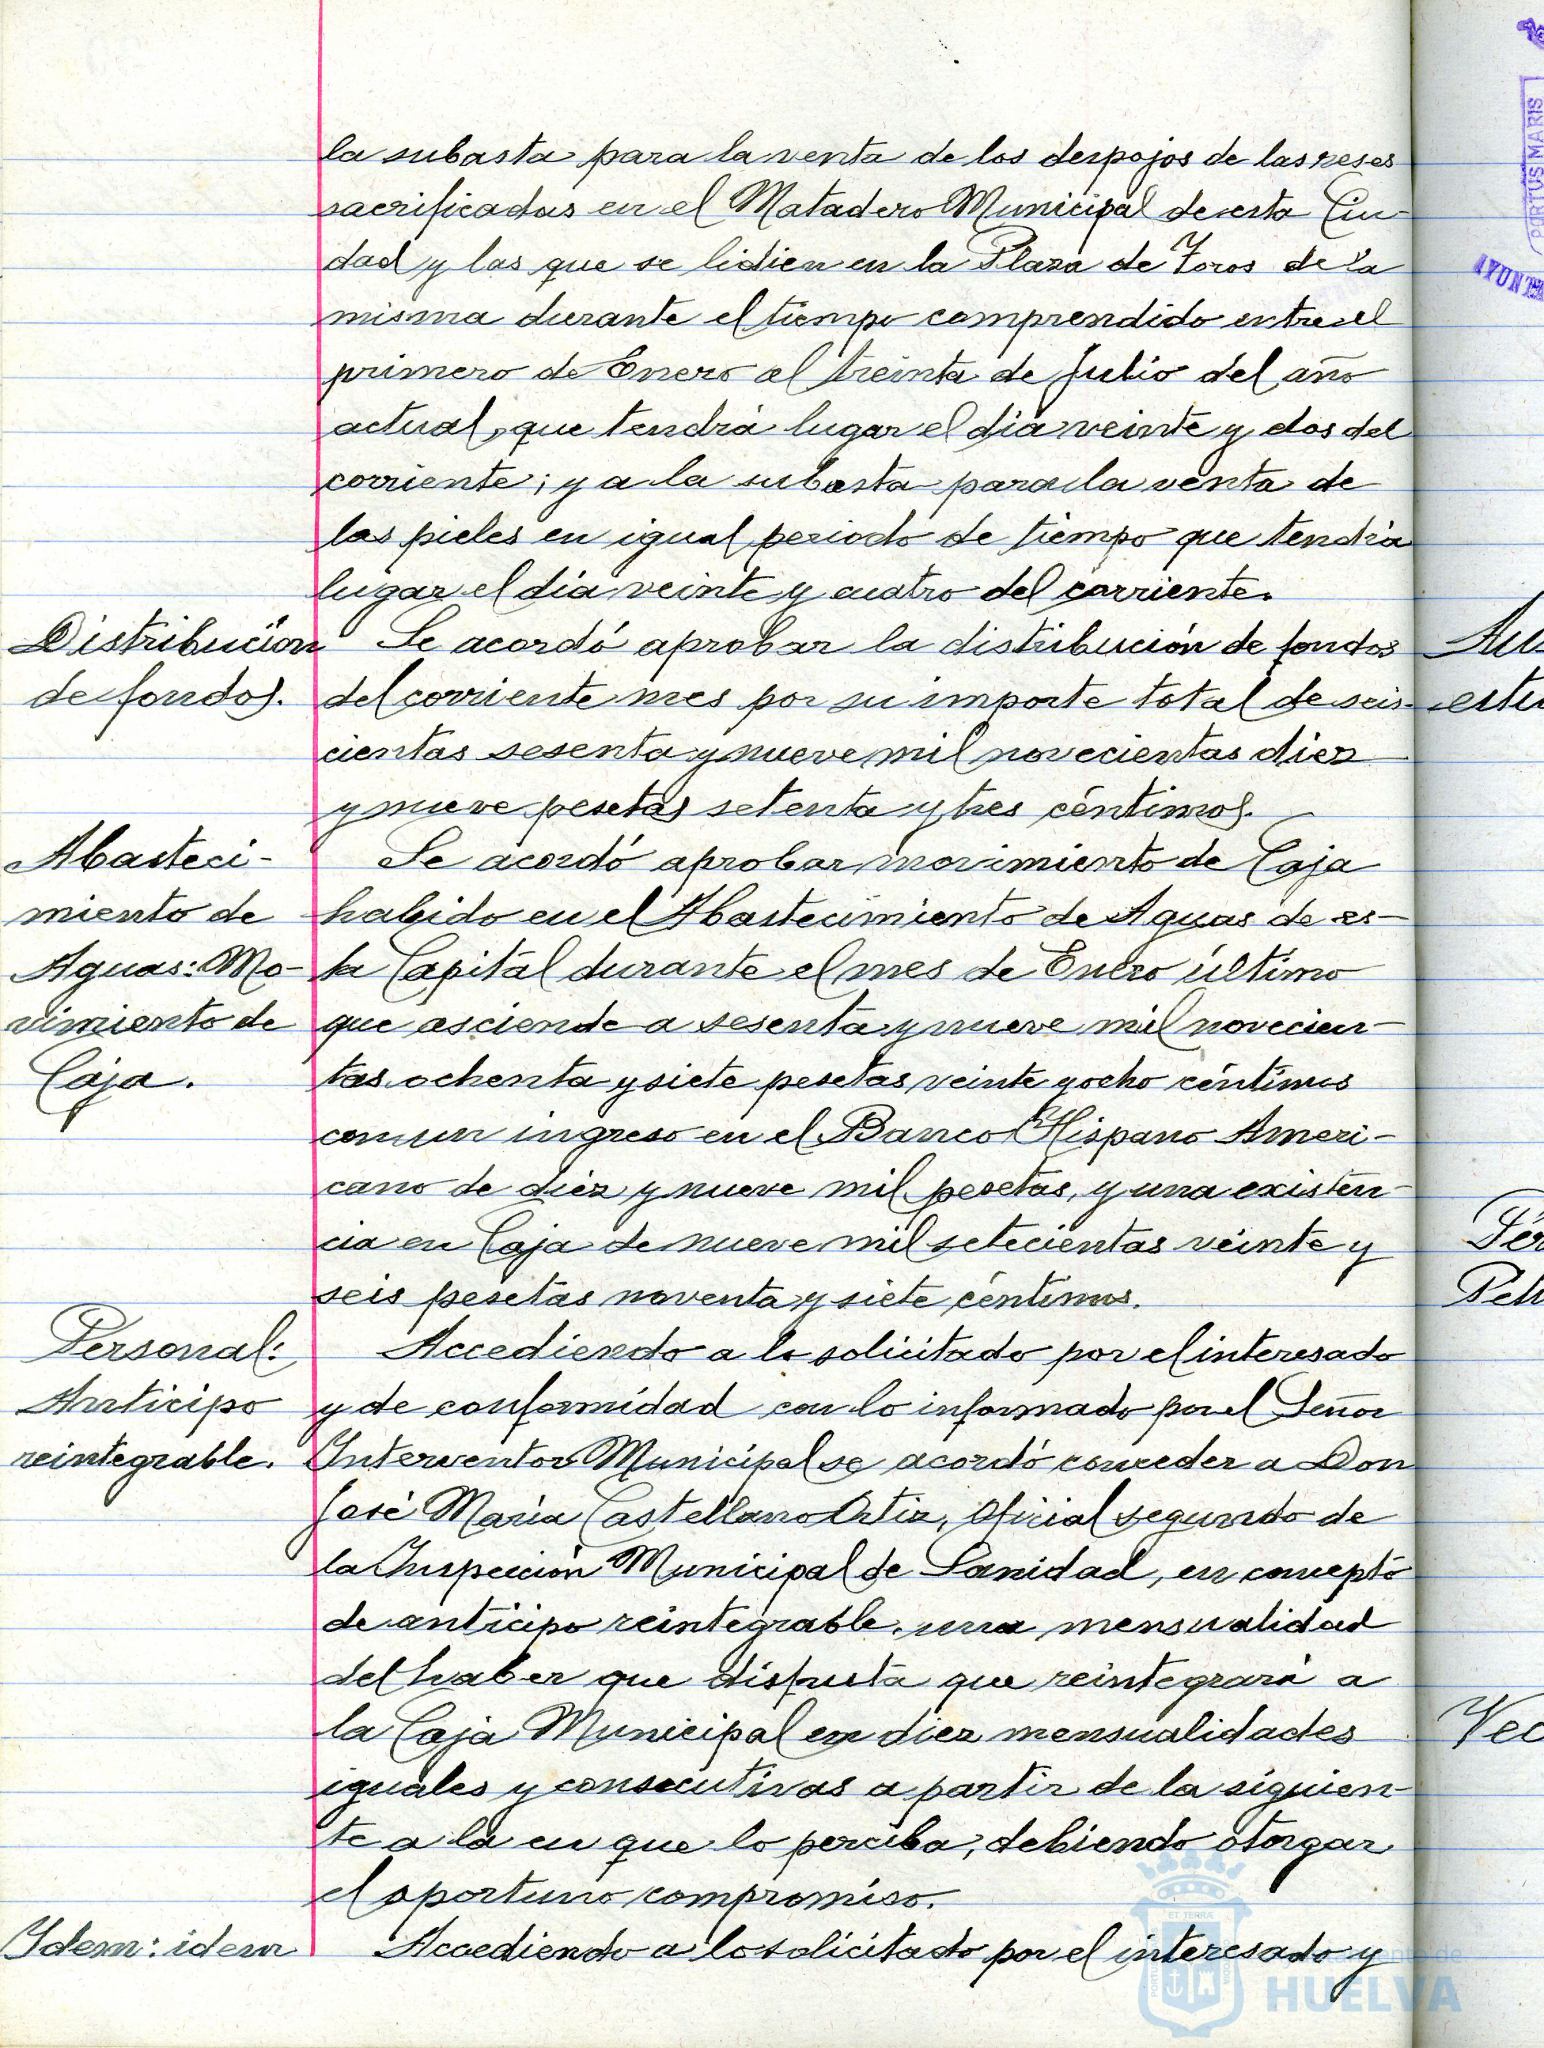 la subasta para la venta de los despojos de las reses
sacrificadas en el Matadero Municipal de esta Ciu-
dad y las que se lidien en la Plaza de Toros de la
misma durante el tiempo comprendido entre el
primero de Enero al treinta de Julio del año
actual, que tendrá lugar el dia veinte y dos del
corriente; y a la subasta para la venta de
las pieles en igual periodo de tiempo que tendrá
lugar el dia veinte y cuatro del corriente.
Distribución
de fondos.
Se acordó aprobar la distribución de fondos
del corriente mes por su importe total de seis-
cientas sesenta y nueve mil novecientas diez
y nueve pesetas setenta y tres céntimos.
Abasteci-
miento de
Aguas: Mo-
vimiento de
Caja.
Se acordó aprobar movimiento de Caja
habido en el Abastecimiento de Aguas de es-
ta Capital durante el mes de Enero último
que asciende a sesenta y nueve mil novecien-
tas ochenta y siete pesetas veinte y ocho céntimos
con un ingreso en el Banco Hispano Ameri-
cano de diez y nueve mil pesetas, y una existen-
cia en Caja de nueve mil setecientas veinte y
seis pesetas noventa y siete céntimos.
Personal:
Anticipo
reintegrable.
Accediendo a lo solicitado por el interesado
y de conformidad con lo informado por el Señor
Interventor Municipal se acordó conceder a Don
José María Castellano Ortiz, Oficial segundo de
la Inspección Municipal de Sanidad, en concepto
de anticipo reintegrable, una mensualidad
del haber que disfruta que reintegrará a
la Caja Municipal en diez mensualidades
iguales y consecutivas a partir de la siguien-
te a la en que lo perciba, debiendo otorgar
el oportuno compromiso.
Idem: idem
Accediendo a lo solicitado por el interesado y
PORTUS MARIS
HUELVA